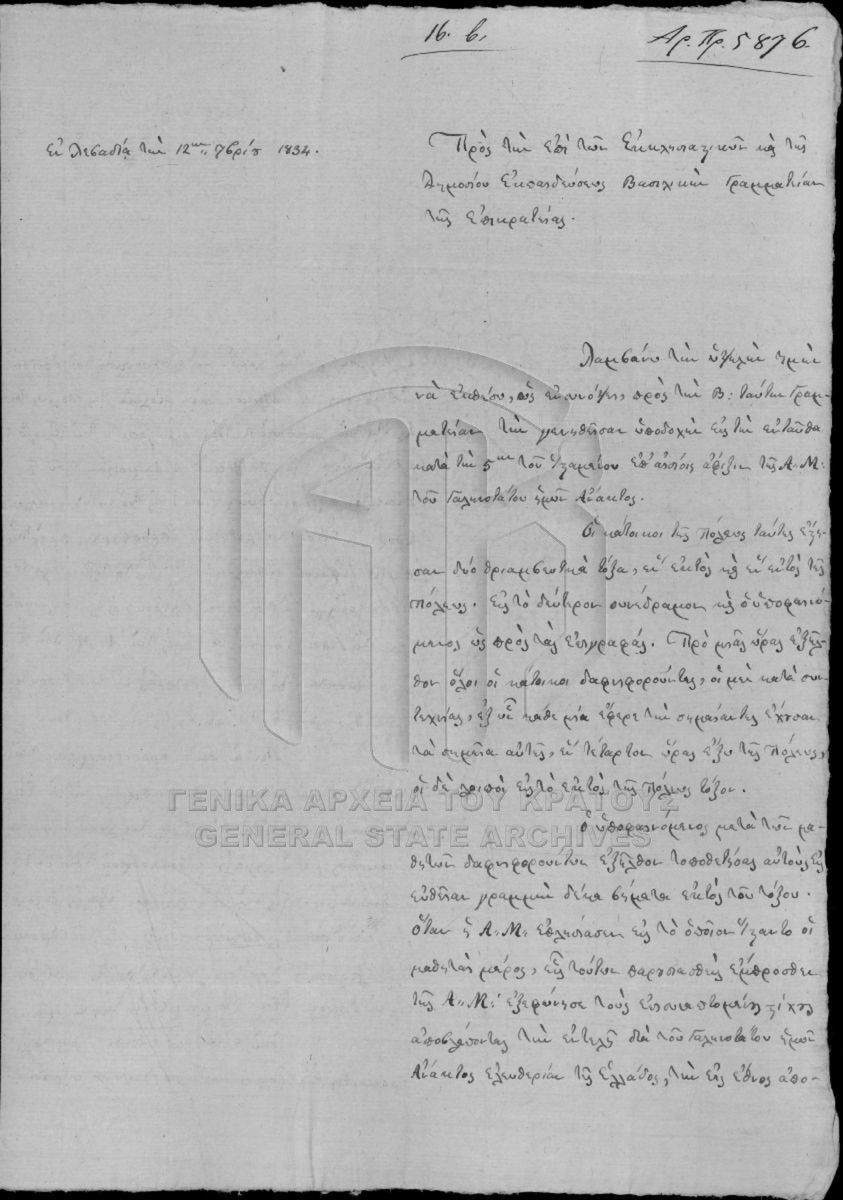 16. β.
Αρ. Πρ. 5876
Ἐν Λεβαδίᾳ τὴν 12ην 7βρίου 1834.
Πρὸς τὴν ἐπὶ τῶν Ἐκκλησιαστικῶν καὶ τῆς
Δημοσίου Ἐκπαιδεύσεως Βασιλικὴν Γραμματείαν
τῆς Ἐπικρατείας.
Λαμβάνω τὴν ὑψηλὴν τιμὴν
νὰ ἐκθέσω, ὡς ἐν συνόψει, πρὸς τὴν Β: ταύτην Γραμ-
ματείαν τὴν γενηθεῖσαν ὑποδοχὴν εἰς τὴν ἐνταῦθα
κατὰ τὴν 5ην τοῦ ἐπ' αἰσίοις ἄφιξιν τῆς Α. Μ:
τοῦ Γαληνοτάτου ἡμῶν Ἄνακτος.
Οἱ κάτοικοι τῆς πόλεως ταύτης
σαν δύο θριαμβευτικὰ τόξα, ἓν ἐκτὸς καὶ ἓν ἐντὸς τῆς
πόλεως. Εἰς τὸ δεύτερον συνέδραμον καὶ ὁ ὑποφαινό-
μενος ὡς πρὸς τὰς ἐπιγραφάς. Πρὸ μιᾶς ὥρας ἐξῆλ-
θον ὅλοι οἱ κάτοικοι δαφνηφοροῦντες, οἱ μὲν κατὰ συν-
τεχνίας, ἐξ ὧν κάθε μία ἔφερε τὴν σημαίαν της ἔχουσαν
τὰ σημεῖα αὐτῆς, ἓν τέταρτον ὥρας ἔξω τῆς πόλεως,
οἱ δὲ λοιποὶ εἰς τὸ ἐκτὸς τῆς πόλεως τόξον.
ΓΕΝΙΚΑ ΑΡΧΕΙΑ ΤΟΥ ΚΡΑΤΟΥΣ
GENERAL STATE ARCHIVES
Ὁ ὑποφαινόμενος μετὰ τῶν μα-
θητῶν δαφνηφορούντων ἐξῆλθον τοποθετήσας αὐτοὺς εἰς
εὐθεῖαν γραμμὴν δέκα βήματα ἐκτὸς τοῦ τόξου.
Ὅταν ἡ Α. Μ: ἐπλησίασεν εἰς τὸ ὁποῖον ἵσταντο οἱ
μαθηταὶ μέρος, εἷς τούτων παρουσιασθεὶς ἔμπροσθεν
τῆς Α. Μ: ἐξεφώνησε τοὺς ἐπισυναπτομένους στίχους
ἀποβλέποντας τὴν ἐντελῆ διὰ τοῦ Γαληνοτάτου ἡμῶν
Ἄνακτος ἐλευθερίαν τῆς Ἑλλάδος, τὴν εἰς ἔθνος ἀπο-